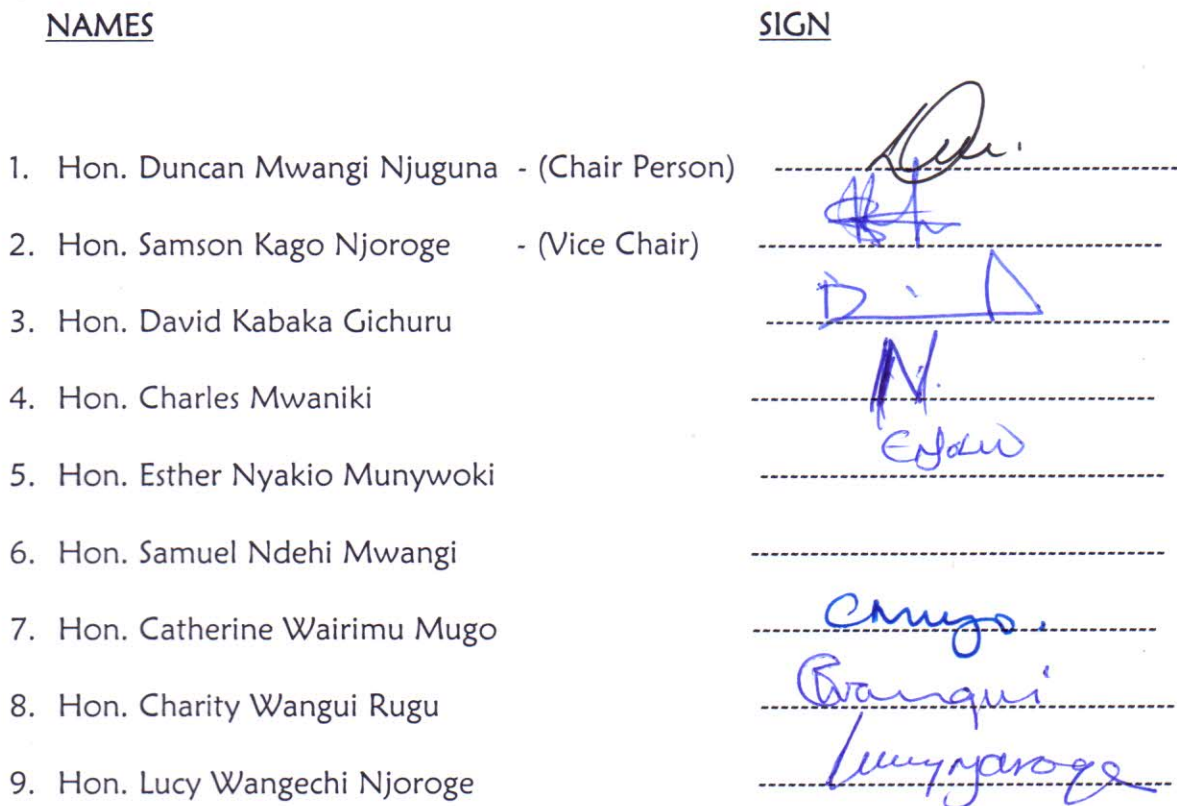 NAMES SIGN
1. Hon. Duncan Mwangi Njuguna - (Chair Person)
2. Hon. Samson Kago Njoroge - (Vice Chair)
3. Hon. David Kabaka Gichuru
4. Hon. Charles Mwaniki
5. Hon. Esther Nyakio Munywoki
6. Hon. Samuel Ndehi Mwangi
7. Hon. Catherine Wairimu Mugo CMugo.
8. Hon. Charity Wangui Rugu CWangui
9. Hon. Lucy Wangechi Njoroge Lucy Njoroge